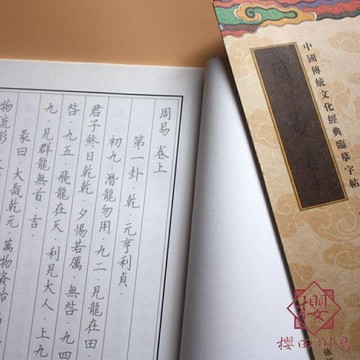 中國傳統文化經典臨摹字帖
張
周易 卷上
第一卦.乾.元亨利貞.
初九.潛龍勿用.九二.見龍在田.
君子終日乾乾.夕惕若厲.無咎.九四
咎.九五.飛龍在天.利見大人.上九
九.見群龍無首.吉.
彖曰.大哉乾元.萬物資始
物流形.
櫻
櫻田川島